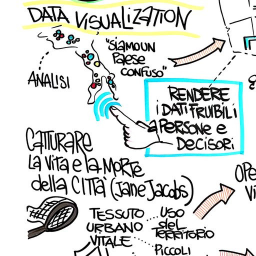 DATA VISUALIZATION
"SIAMO UN
PAESE
CONFUSO"
ANALISI
RENDERE
i DATI FRUIBILI
A PERSONE e
DECISORI
CATTURARE
LA VITA e la MORTE
della CITTÀ (Jane Jacobs)
TESSUTO
URBANO
VITALE
USO
del
TERRITORIO
PICCOLI